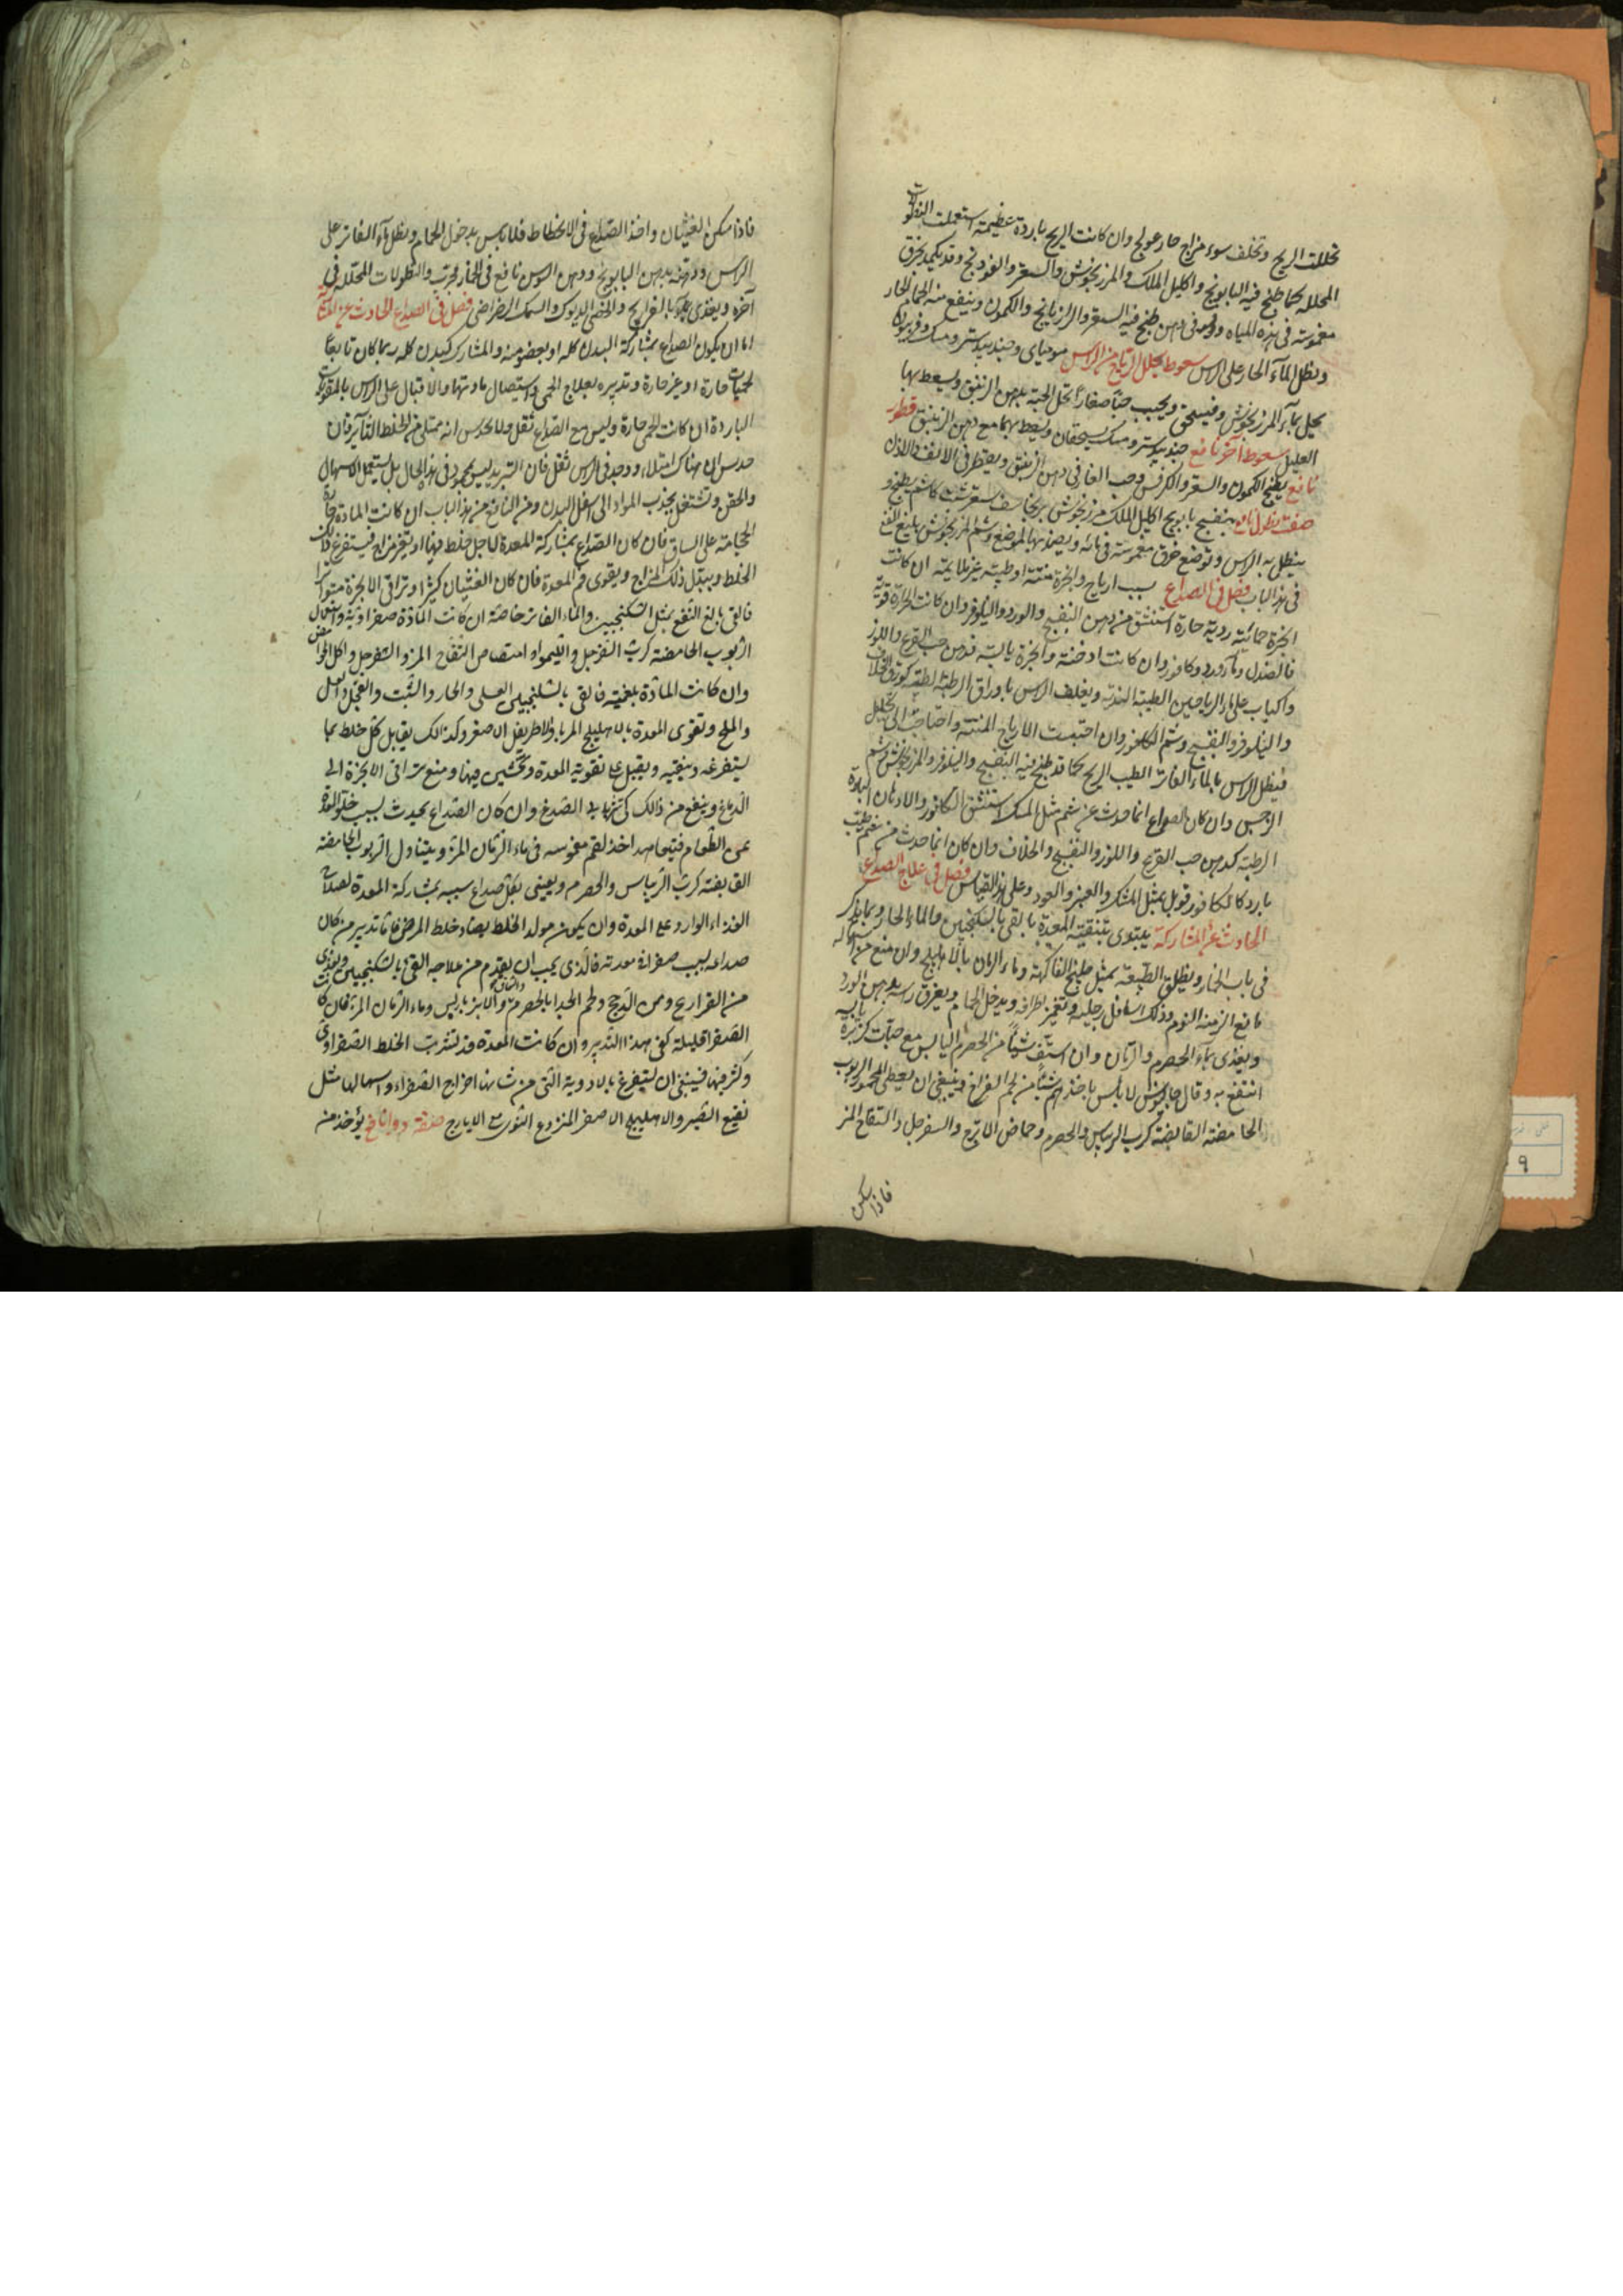 تحللت الريح وتخلف سوء مزاج حار عولج وان كانت الريح باردة عظيمة استعملت النطولات
المحلله كما طبخ فيه البابونج واكليل الملك والمرزنجوش والسعتر والفودنج وقد يكمد بخرق
مغموسة فى هذه المياه ودهن طبخ فيه السعتر والرازيانج والكمون وينفع منه الحمام الحار
ونطل المآء الحار على الراس سعوط يحلل الرياح من الراس موميائى وجندبيدستر ومسك وفربيون
يحل بمآء المرزنجوش ويسحق ويحبب حبا صغارا تحل الحبة بدهن الزنبق ويسعط بها
العليل سعوط آخر نافع جندبيدستر ومسك يسحقان ويسعط بهما مع دهن الزنبق قطور
نافع يطبخ الكمون والسعتر والكرفس وحب الغار فى دهن الزنبق ويقطر فى الانف والاذن
صفة نطول نافع بنفسج بابونج اكليل الملك مرزنجوش برنجاسف سعتر شبت كاشم يطبخ و
ينطل به الراس وتوضع خرق مغموسة فى مائه ويضمد بها الموضع وشم المرزنجوش بليغ النفع
فى هذا الباب فصل فى الصداع بسبب ارياح وابخرة منتنة او طيبة غير ملايمة ان كانت
ابخرة حمائية ردية حارة استنشق من دهن البنفسج والورد والنيلوفر وان كانت الحرارة قوية
فالصندل وماء ورد وكافور وان كانت ادخنة وابخرة يابسة فدهن حب القرع واللوز
واكباب على ماء الرياحين الطيبة الندية ويغلف الراس باوراق الرطبة كورق الخلاف
والنيلوفر والبنفسج وشم الكافور وان احتبست الارياح المنتنة واحتاجت الى تحليل
فينطل الراس بالمآء الفاتر الطيب الريح كما قد طبخ فيه البنفسج والنيلوفر والمرزنجوش وشم
النرجس وان كان الصداع انما حدث عن شم مثل المسك استنشق الكافور والادهان الباردة
الرطبة كدهن حب القرع واللوز والبنفسج والخلاف وان كان انما حدث من شم طيب
بارد كالكافور قوبل بمثل المسك والعنبر والعود وعلى هذا القياس فصل فى علاج الصداع
الحادث عن المشاركة يبتدى بتنقية المعدة بالقى بالسكنجبين والماء الحار وبما ذكر
فى باب الخمار ويطلق الطبيعة بمثل طبيخ الفاكهة وماء الرمان بالاهليلج وان منع من اسهاله
مانع الزمنه النوم ودلك اسافل رجليه وتغمز اطرافه ويدخل الحمام ويعرق راسه بدهن الورد
ويغذى بماء الحصرم والرمان وان استف شيئا من الحصرم اليابس مع حبات كزبرة يابسة
انتفع به وقال جالينوس لا باس باخذهم شيئا من لحم الفراخ وينبغى ان يعطى المخمور الربوب
الحامضة القابضة كرب الريباس والحصرم وحماض الاترج والسفرجل والتفاح المز
فاذا سكن
فاذا سكن الغثيان واخذ الصداع فى الانحطاط فلا باس بدخول الحمام ونطل المآء الفاتر على
الراس ودهنه بدهن البابونج ودهن السوسن نافع فى الخمار مجرب والنطولات المحللة فى
آخره ويغذى بالفراريج والخصى الديوك والسمك الرضراضى فصل فى الصداع الحادث عن المشاركة
اما ان يكون الصداع بمشاركة البدن كله او بعضو منه والمشارك للبدن كله ربما كان تابعا
لحميات حارة او غير حارة وتدبيره بعلاج الحمى واستيصال مادتها والاقبال على الراس بالمقويات
الباردة ان كانت الحمى حارة وليس مع الصداع ثقل ولا يحدس انه ممتلى من الخلط الثاير فان
حدس ان هناك امتلاء ووجد فى الراس ثقل فان التبريد ليس بمحمود فى هذه الحال بل يستعمل الاسهال
والحقن وتشتغل بجذب المواد الى اسفل البدن ومن النافع من هذا الباب ان كانت المادة حارة
الحجامة على الساق فان كان الصداع بمشاركة المعدة لاجل خلط فيها او تغير مزاج فيستفرغ ذلك
الخلط ويبدل ذلك المزاج ويقوى فم المعدة فان كان الغثيان كثيرا وتراقى الابخرة متواترا
فالقى بالغ النفع بمثل السكنجبين والماء الفاتر خاصة ان كانت المادة صفراوية واستعمال
الربوب الحامضة كرب السفرجل والليمو او امتصاص التفاح المز والسفرجل واكل الحوامض
وان كانت المادة بلغمية فالقى بالسكنجبين العسلى والحار والشبت والفجل والعسل
والملح وتقوى المعدة بالاهليلج المربا والاطريفل الاصغر وكذالك يقابل كل خلط بما
يستفرغه وينقيه ويقبل على تقوية المعدة وتحسين فيها ومنع تراقى الابخرة الى
الدماغ وينفع من ذالك كى الصدغ وان كان الصداع يحدث بسبب خلو المعدة
عن الطعام فيتعاهد اخذ لقم مغموسه فى ماء الرمان المز ويتناول الربوب الحامضة
القابضة كرب الريباس والحصرم ويعنى بكل صداع سببه بمشاركة المعدة لصلاح
الغذاء الوارد على المعدة وان يكون مولد الخلط يضاد خلط المرض فاما تدبير من كان
صداعه بسبب صفراء معدته فالذى يجب ان يقدم من علاجه القى بالسكنجبين ويغذى
من الفراريج ومن الدجج ولحم الجدا بالحصرم والسماق والانبرباريس وماء الرمان المز فان كانت
الصفرا قليلة كفى بهذا التدبير وان كانت المعدة قد تشربت الخلط الصفراوى
وكثر فيها فينبغى ان يستفرغ بالادوية التى من شانها اخراج الصفراء واسهالها مثل
نقيع الصبر والاهليلج الاصفر المنزوع النوى الايارج صفة دواء نافع يؤخذ منه